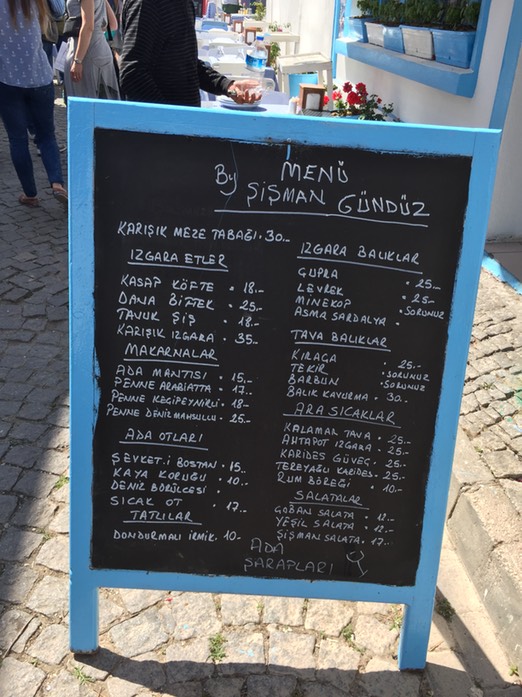 MENÜ
By ŞİŞMAN GÜNDÜZ
KARIŞIK MEZE TABAĞI . 30.-
IZGARA ETLER
KASAP KÖFTE . 18.-
DANA BİFTEK . 25.-
TAVUK ŞİŞ . 18.-
KARIŞIK IZGARA . 35.-
MAKARNALAR
ADA MANTISI . 15.-
PENNE ARABIATTA . 17.-
PENNE KEÇİPEYNİRLİ . 18-
PENNE DENİZ MAHSULLÜ . 25-
ADA OTLARI
ŞEVKET.İ BOSTAN . 15..
KAYA KORUĞU . 10..
DENİZ BÖRÜLCESİ .
SICAK OT . 17..
TATLILAR
DONDURMALI İRMİK. 10-
IZGARA BALIKLAR
ÇUPRA . 25.-
LEVREK . 25-
MİNEKOP . SORUNUZ
ASMA SARDALYA .
TAVA BALIKLAR
KIRAÇA . 25.-
TEKİR . SORUNUZ
BARBUN . SORUNUZ
BALIK KAVURMA . 30.-
ARA SICAKLAR
KALAMAR TAVA . 25-
AHTAPOT IZGARA . 25-
KARİDES GÜVEÇ . 25-
TEREYAĞLI KARİDES . 25-
RUM BÖREĞİ . 10..
SALATALAR
ÇOBAN SALATA . 12..
YEŞİL SALATA . 12..
ŞİŞMAN SALATA. 17..
ADA
ŞARAPLARI